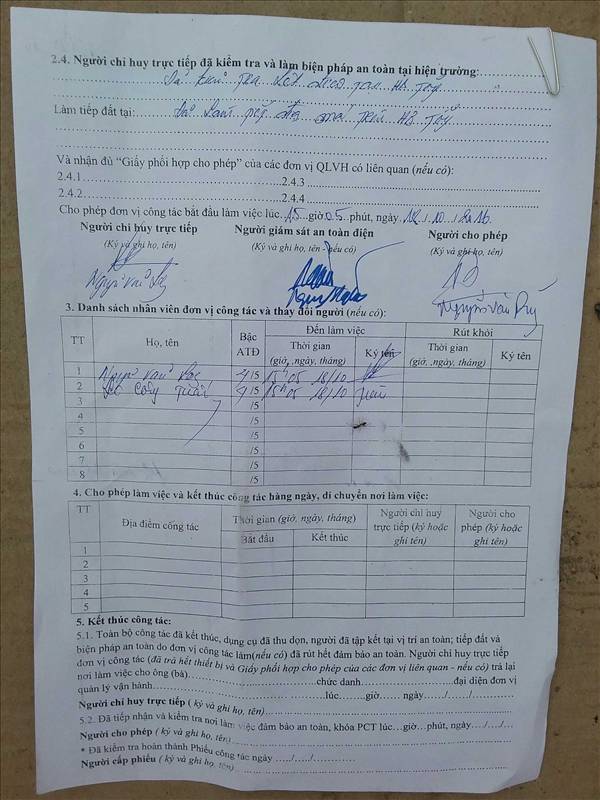 2.4. Người chỉ huy trực tiếp đã kiểm tra và làm biện pháp an toàn tại hiện trường:
Đã kiểm tra
Làm tiếp đất tại: Đã làm tiếp địa
Và nhận đủ "Giấy phối hợp cho phép" của các đơn vị QLVH có liên quan (nếu có):
2.4.1 2.4.3
2.4.2 2.4.4
Cho phép đơn vị công tác bắt đầu làm việc lúc 15 giờ 05 phút, ngày / 10 / 2016
Người chỉ huy trực tiếp Người giám sát an toàn điện Người cho phép
(Ký và ghi họ, tên) (Ký và ghi họ, tên - nếu có) (Ký và ghi họ, tên)
Nguyễn Văn Nguyễn Văn
3. Danh sách nhân viên đơn vị công tác và thay đổi người (nếu có):
TT Họ, tên Bậc ATĐ Đến làm việc Rút khỏi
Thời gian (giờ, ngày, tháng) Ký tên Thời gian (giờ, ngày, tháng) Ký tên
1 Nguyễn Văn /5 15h05 18/10
2 Công Tuấn /5 15h05 18/10
3 /5
4 /5
5 /5
6 /5
7 /5
8 /5
4. Cho phép làm việc và kết thúc công tác hàng ngày, di chuyển nơi làm việc:
TT Địa điểm công tác Thời gian (giờ, ngày, tháng) Người chỉ huy trực tiếp (ký hoặc ghi tên) Người cho phép (ký hoặc ghi tên)
Bắt đầu Kết thúc
1
2
3
4
5
5. Kết thúc công tác:
5.1. Toàn bộ công tác đã kết thúc, dụng cụ đã thu dọn, người đã tập kết tại vị trí an toàn; tiếp đất và
biện pháp an toàn do đơn vị công tác làm(nếu có) đã rút hết đảm bảo an toàn. Người chỉ huy trực tiếp
đơn vị công tác (đã trả hết thiết bị và Giấy phối hợp cho phép của các đơn vị liên quan - nếu có) trả lại
nơi làm việc cho ông (bà) chức danh đại diện đơn vị
quản lý vận hành lúc giờ ngày / /
Người chỉ huy trực tiếp ( ký và ghi họ, tên)
5.2. Đã tiếp nhận và kiểm tra nơi làm việc đảm bảo an toàn, khóa PCT lúc...giờ...phút, ngày.../.../...
Người cho phép ( ký và ghi họ, tên)
* Đã kiểm tra hoàn thành Phiếu công tác ngày ..../...../.......
Người cấp phiếu ( ký và ghi họ, tên)